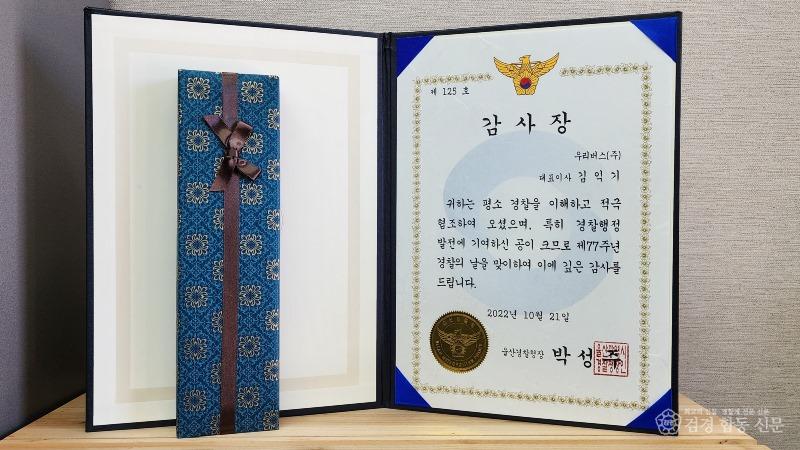 제 125 호
감 사 장
우리버스(주)
대표이사 김 익 기
귀하는 평소 경찰을 이해하고 적극
협조하여 오셨으며, 특히 경찰행정
발전에 기여하신 공이 크므로 제77주년
경찰의 날을 맞이하여 이에 깊은 감사를
드립니다.
2022년 10월 21일
울산경찰청장 박 성 주
검경 합동 신문